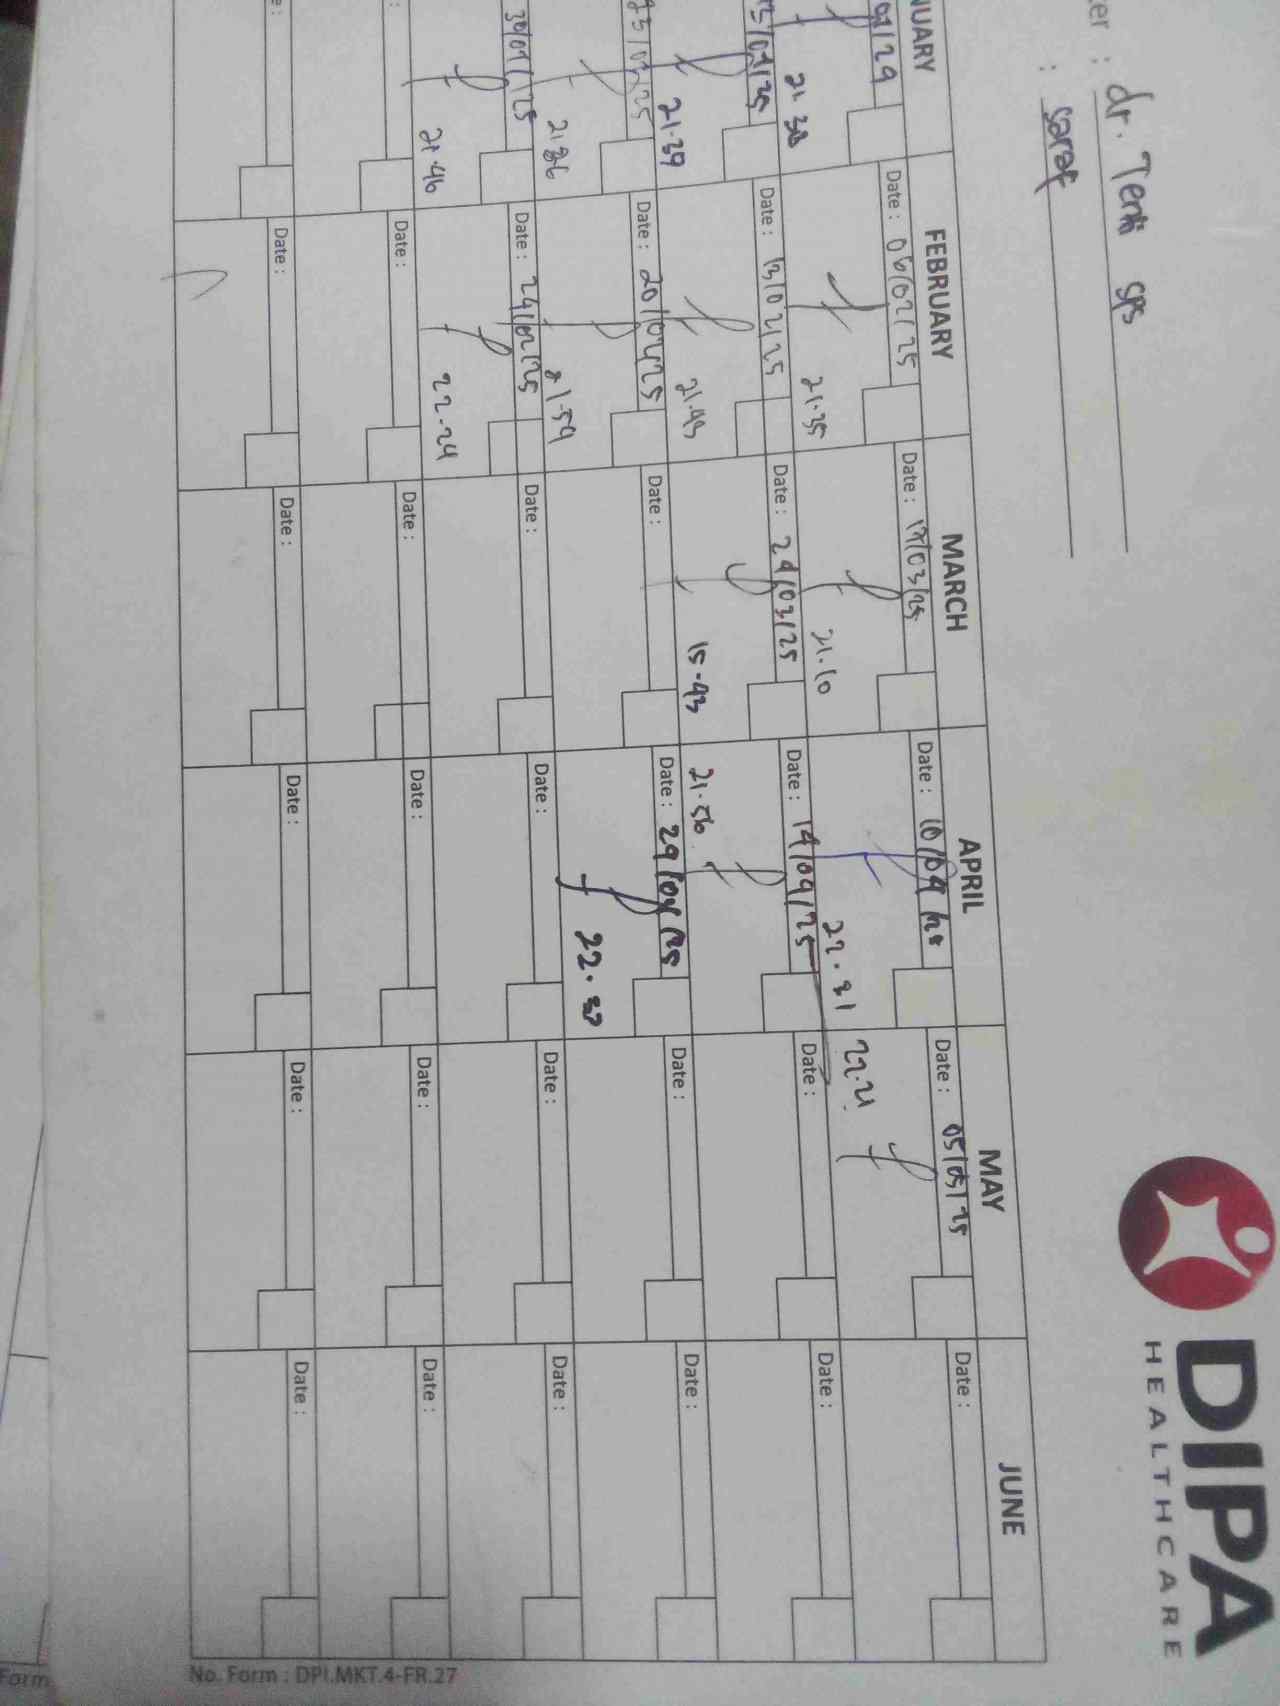 DIPA
HEALTHCARE
: dr. Tenti sps
: saraf
NUARY FEBRUARY MARCH APRIL MAY JUNE
Date : 06/02/25 Date : 17/03/25 Date : 10/04/25 Date : 05/05/25 Date :
21.38 21.35 21.10 22.31 22.21
15/01/25 Date : 13/02/25 Date : 24/03/25 Date : 14/04/25 Date : Date :
21.39 21.43 15-43 21.56
Date : 20/02/25 Date : Date : 29/04/25 Date : Date :
21.59 22.37
30/01/25 Date : 24/02/25 Date : Date : Date : Date :
21.46 22.24
: Date : Date : Date : Date : Date :
: Date : Date : Date : Date : Date :
No. Form : DPI.MKT.4-FR.27
Form